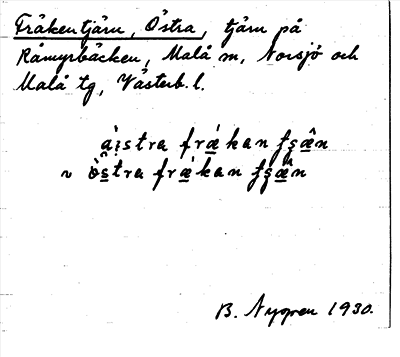 Fräkentjärn, Östra, tjärn på
Råmyrbäcken, Malå sn, Norsjö och
Malå tg, Västerb. l.
àistra frǽkan tʂæ̂n
~ ö̀stra frǽkan tʂæ̂n
B. Nygren 1930.